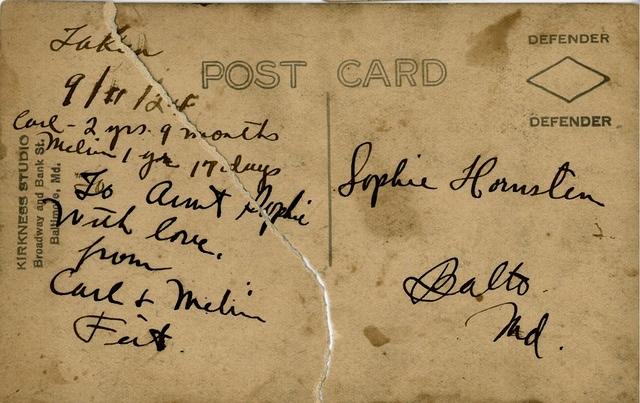 Taken
9/
Carl - 2 yrs. 9 months
Melvin 1 yr 17 days
To Aunt Sophie
With love.
from
Carl & Melvin
Feit.
KIRKNESS STUDIO
Broadway and Bank St.
Baltimore, Md.
POST CARD
DEFENDER
DEFENDER
Sophie Hornstein
Balto.
Md.